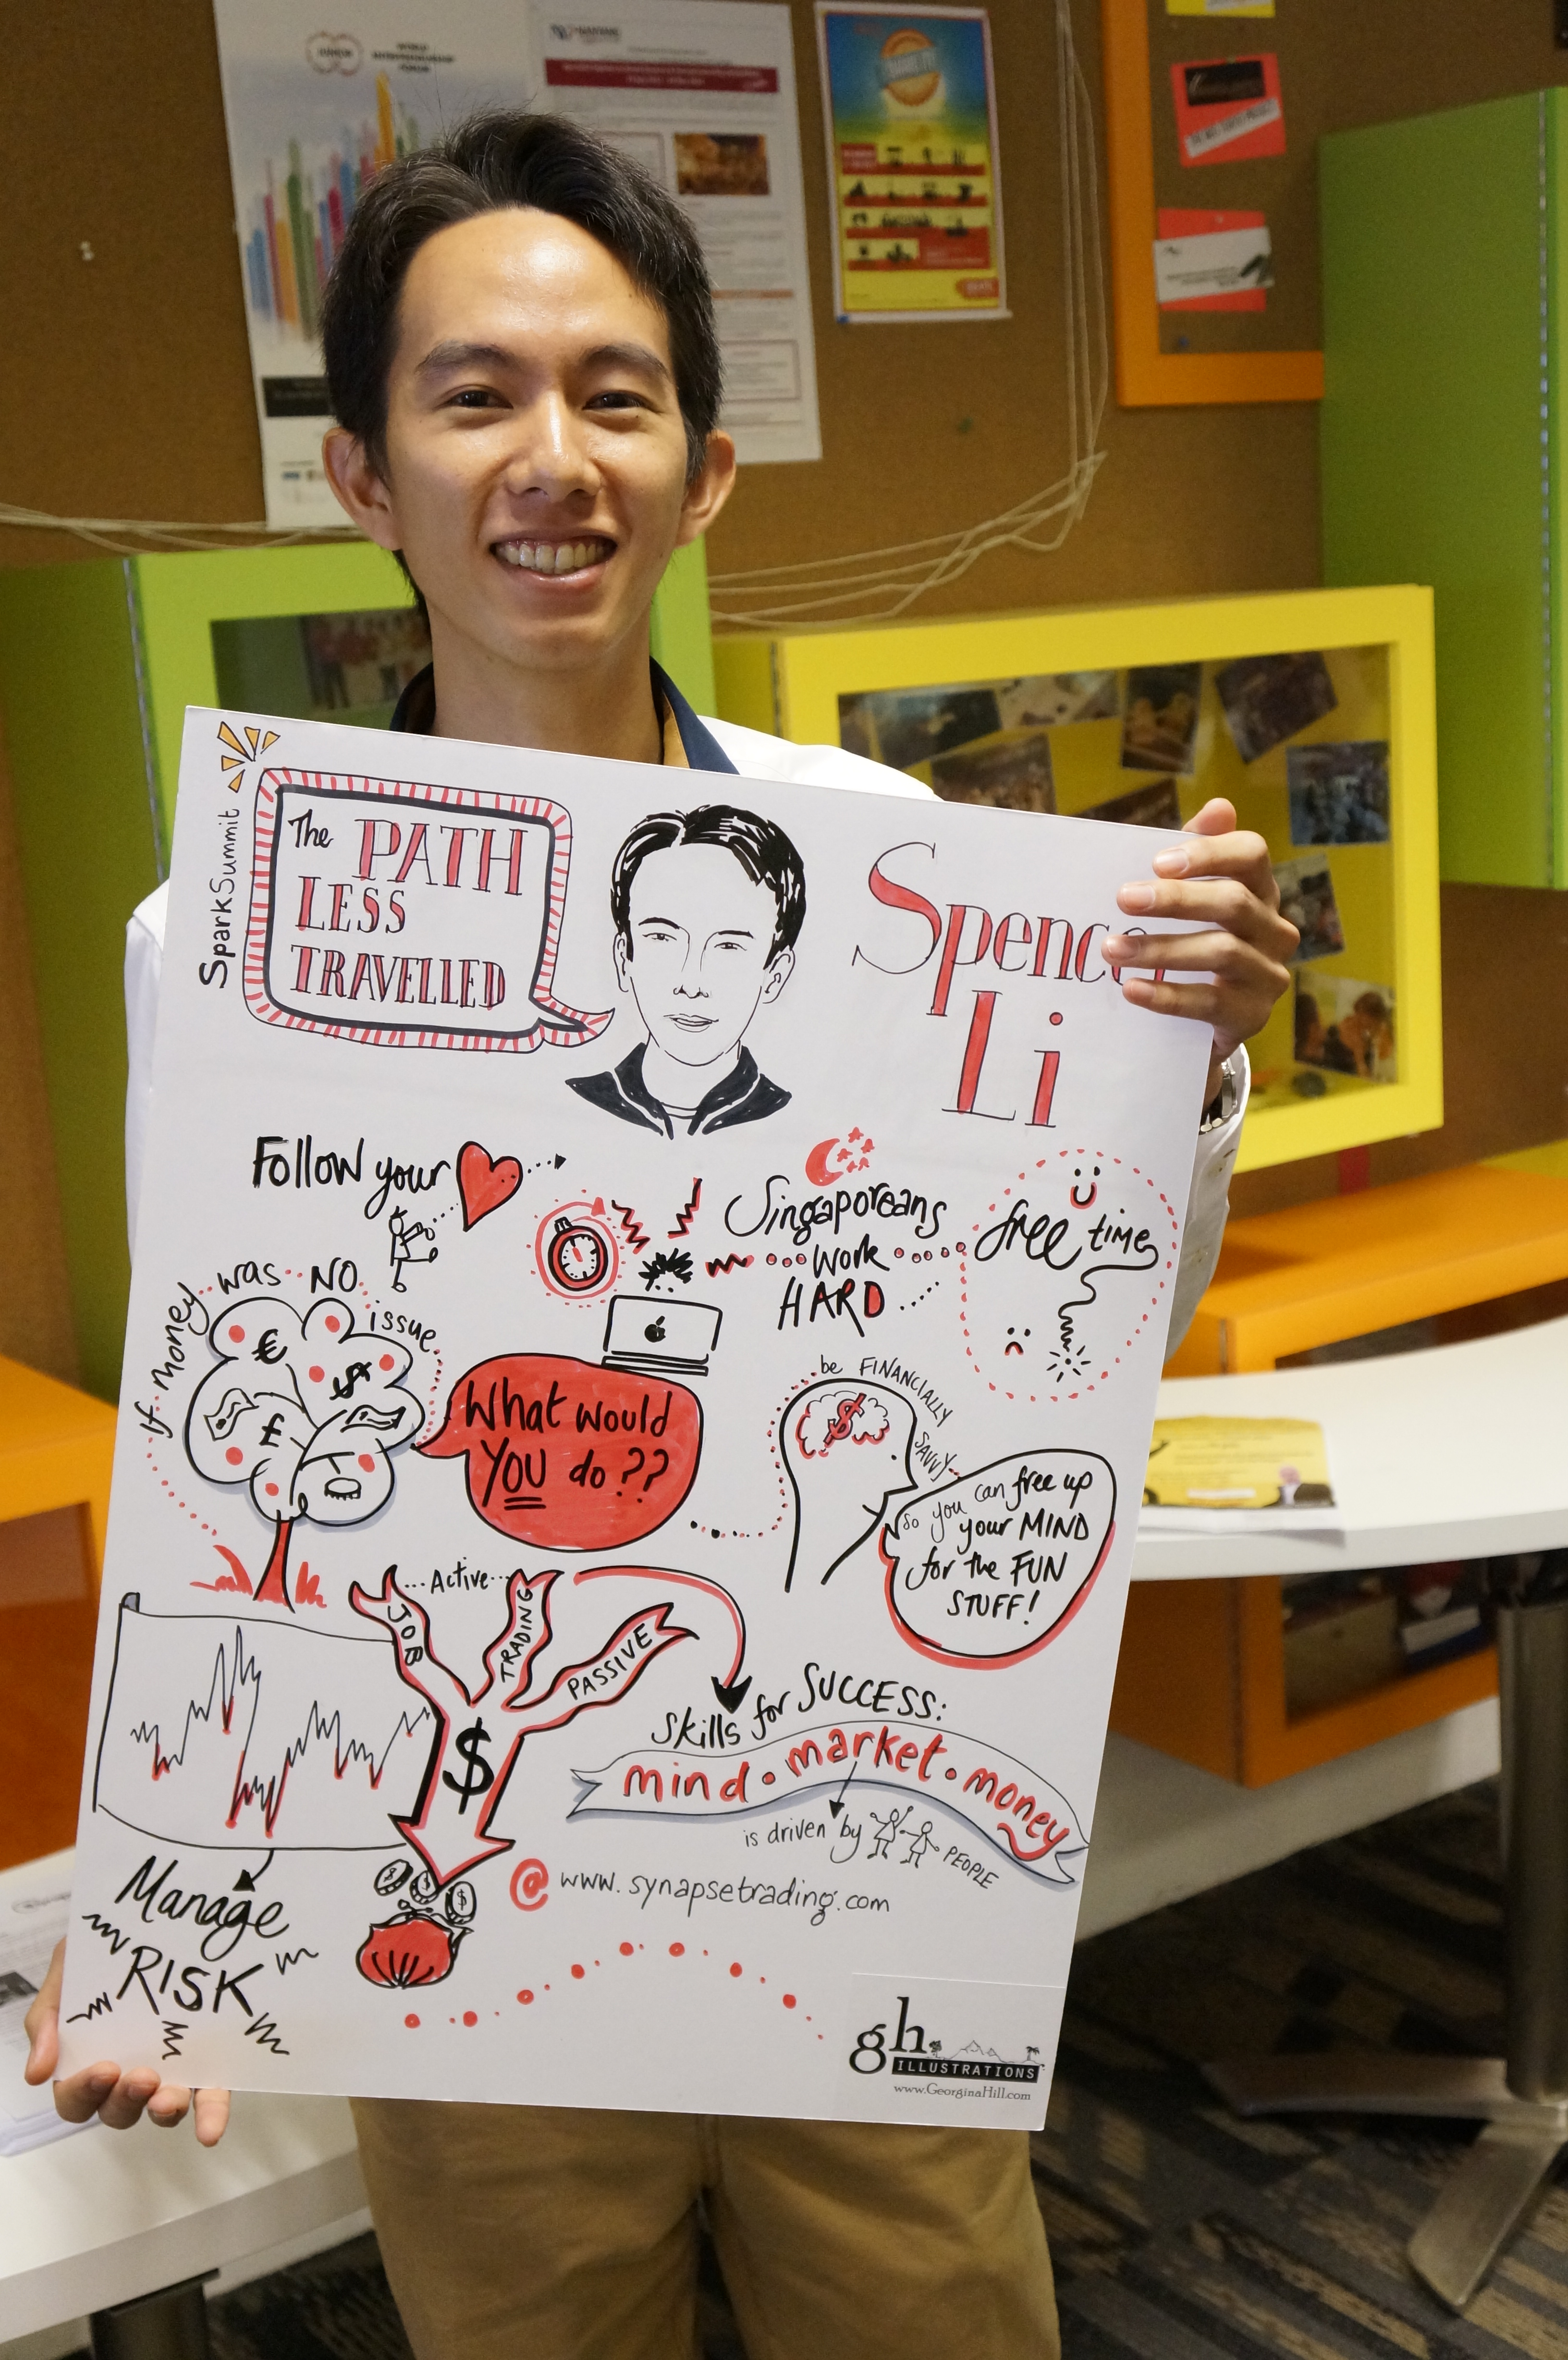 WORLD
ENTREPRENEURSHIP
FORUM
SparkSummit
The PATH
LESS
TRAVELLED
Spence
Li
Follow your
Singaporeans
work
HARD
free time
If money was NO issue
What would
YOU do??
be FINANCIALLY SAVVY
so you can free up
your MIND
for the FUN
STUFF!
Active
JOB
TRADING
PASSIVE
$
Skills for SUCCESS:
mind • market • money
is driven by PEOPLE
@ www.synapsetrading.com
Manage
RISK
gh
ILLUSTRATIONS
www.GeorginaHill.com